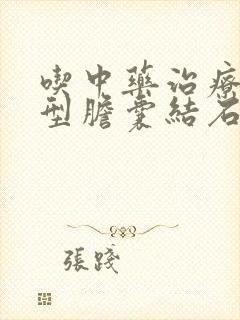 喫中藥治療
型膽囊結石
張踐